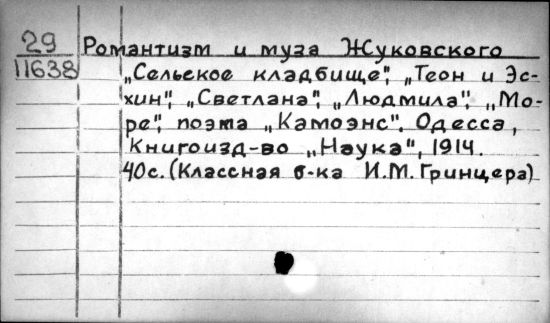 29 Романтизм и муза Жуковского
11638 „Сельское кладбище", „Теон и Эс-
хин", „Светлана", „Людмила", „Мо-
ре", поэма „Камоэнс". Одесса,
Книгоизд-во „Наука", 1914.
40с. (Классная б-ка И.М. Гринцера)